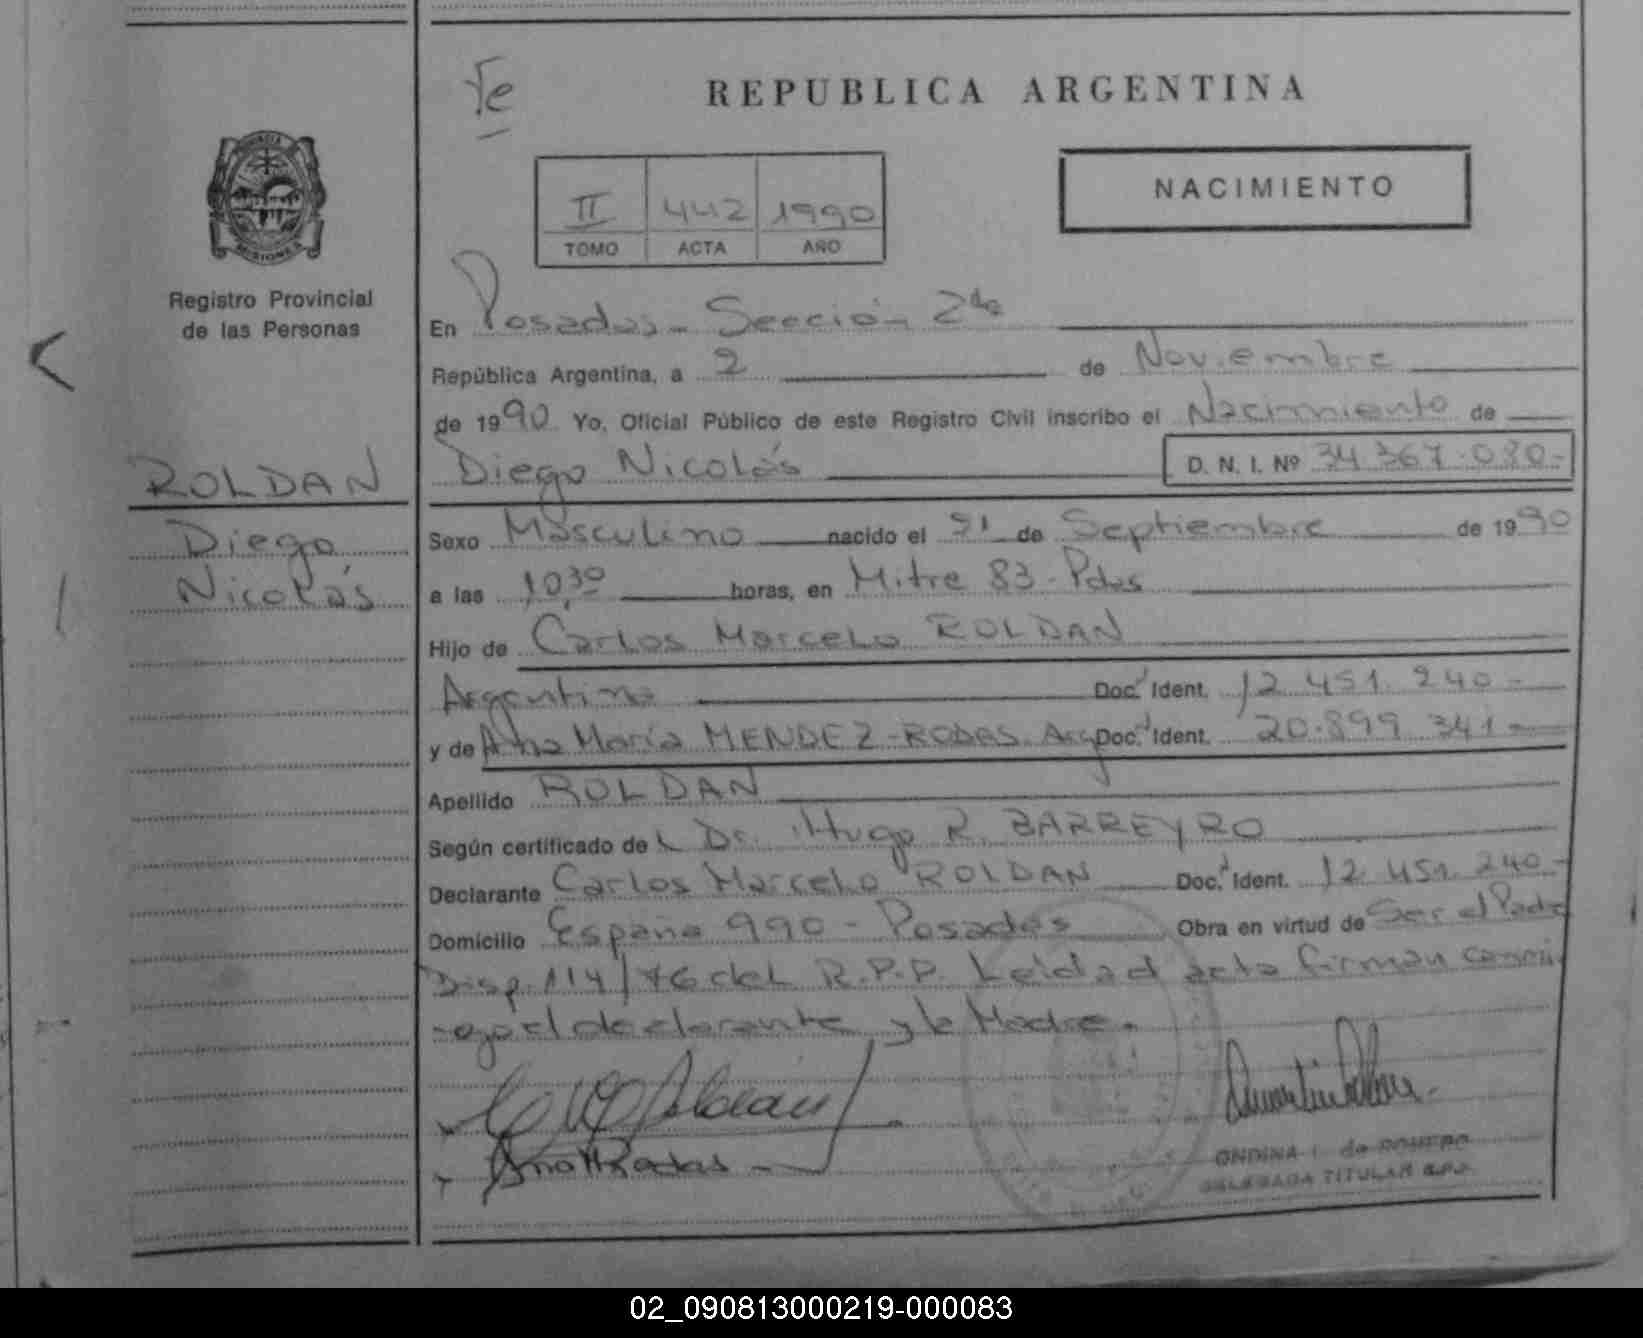 Te
REPUBLICA ARGENTINA
NACIMIENTO
II 442 1990
TOMO ACTA AÑO
PROVINCIA MISIONES
Registro Provincial
de las Personas
En Posadas - Sección 2da
República Argentina, a 2 de Noviembre
de 1990 Yo, Oficial Público de este Registro Civil inscribo el Nacimiento de
Diego Nicolás D. N. I. Nº 34.367.080.-
ROLDAN
Diego
Nicolás
Sexo Masculino nacido el 21 de Septiembre de 1990
a las 10,30 horas, en Mitre 83 - Pdas
Hijo de Carlos Marcelo ROLDAN
Argentino Doc. Ident. 12.451.240.-
y de Ana María MENDEZ-RODAS. Arg. Doc. Ident. 20.899.341.-
Apellido ROLDAN
Según certificado de L Dr. Hugo R. BARREYRO
Declarante Carlos Marcelo ROLDAN Doc. Ident. 12.451.240.-
Domicilio España 990 - Posadas Obra en virtud de Ser el Padre
Disp. 114/76 del R.P.P. Leída el acta firman conmi-
-go el declarante y la Madre.
Roldán
Ana M Rodas
ONDINA I. de ROMERO
DELEGADA TITULAR R.P.P.
02_090813000219-000083